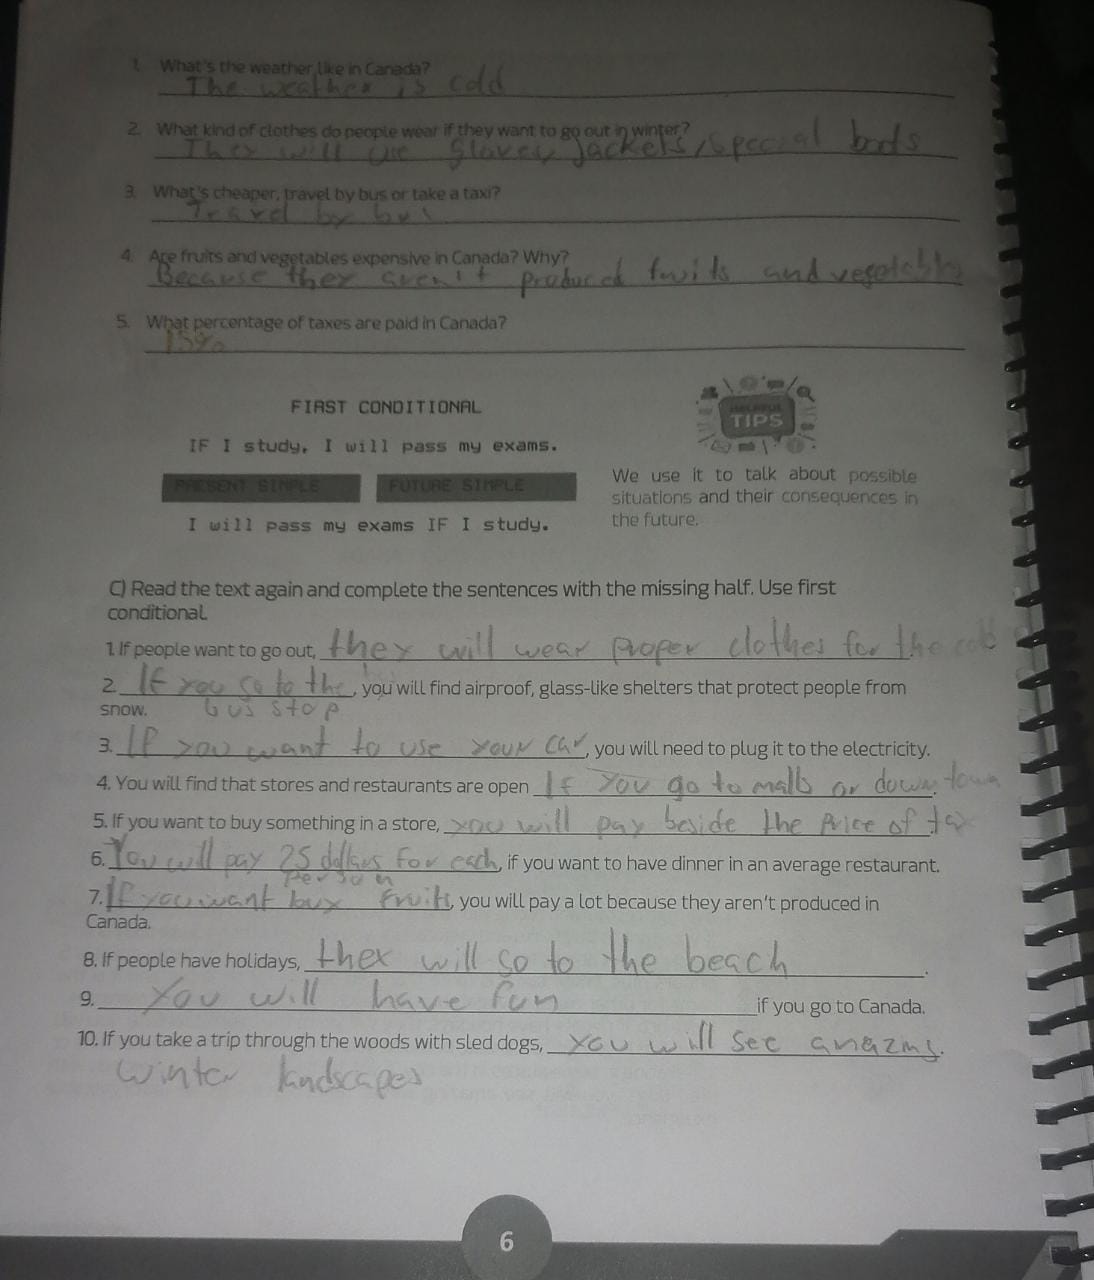 1. What's the weather like in Canada?
The weather is cold
2. What kind of clothes do people wear if they want to go out in winter?
They will use gloves, jackets, special boots
3. What's cheaper, travel by bus or take a taxi?
Travel by bus
4. Are fruits and vegetables expensive in Canada? Why?
Because they aren't produced fruits and vegetables
5. What percentage of taxes are paid in Canada?
15%
FIRST CONDITIONAL
HELPFUL
TIPS
IF I study, I will pass my exams.
PRESENT SIMPLE FUTURE SIMPLE
I will pass my exams IF I study.
We use it to talk about possible
situations and their consequences in
the future.
C) Read the text again and complete the sentences with the missing half. Use first
conditional.
1. If people want to go out, they will wear proper clothes for the cold
2. If you go to the, you will find airproof, glass-like shelters that protect people from
snow. bus stop
3. If you want to use your car, you will need to plug it to the electricity.
4. You will find that stores and restaurants are open If you go to malls or downtown.
5. If you want to buy something in a store, you will pay beside the price of tax
6. You will pay 25 dollars for each, if you want to have dinner in an average restaurant.
person
7. If you want buy fruits, you will pay a lot because they aren't produced in
Canada.
8. If people have holidays, they will go to the beach.
9. You will have fun if you go to Canada.
10. If you take a trip through the woods with sled dogs, you will see amazing.
winter landscapes
6